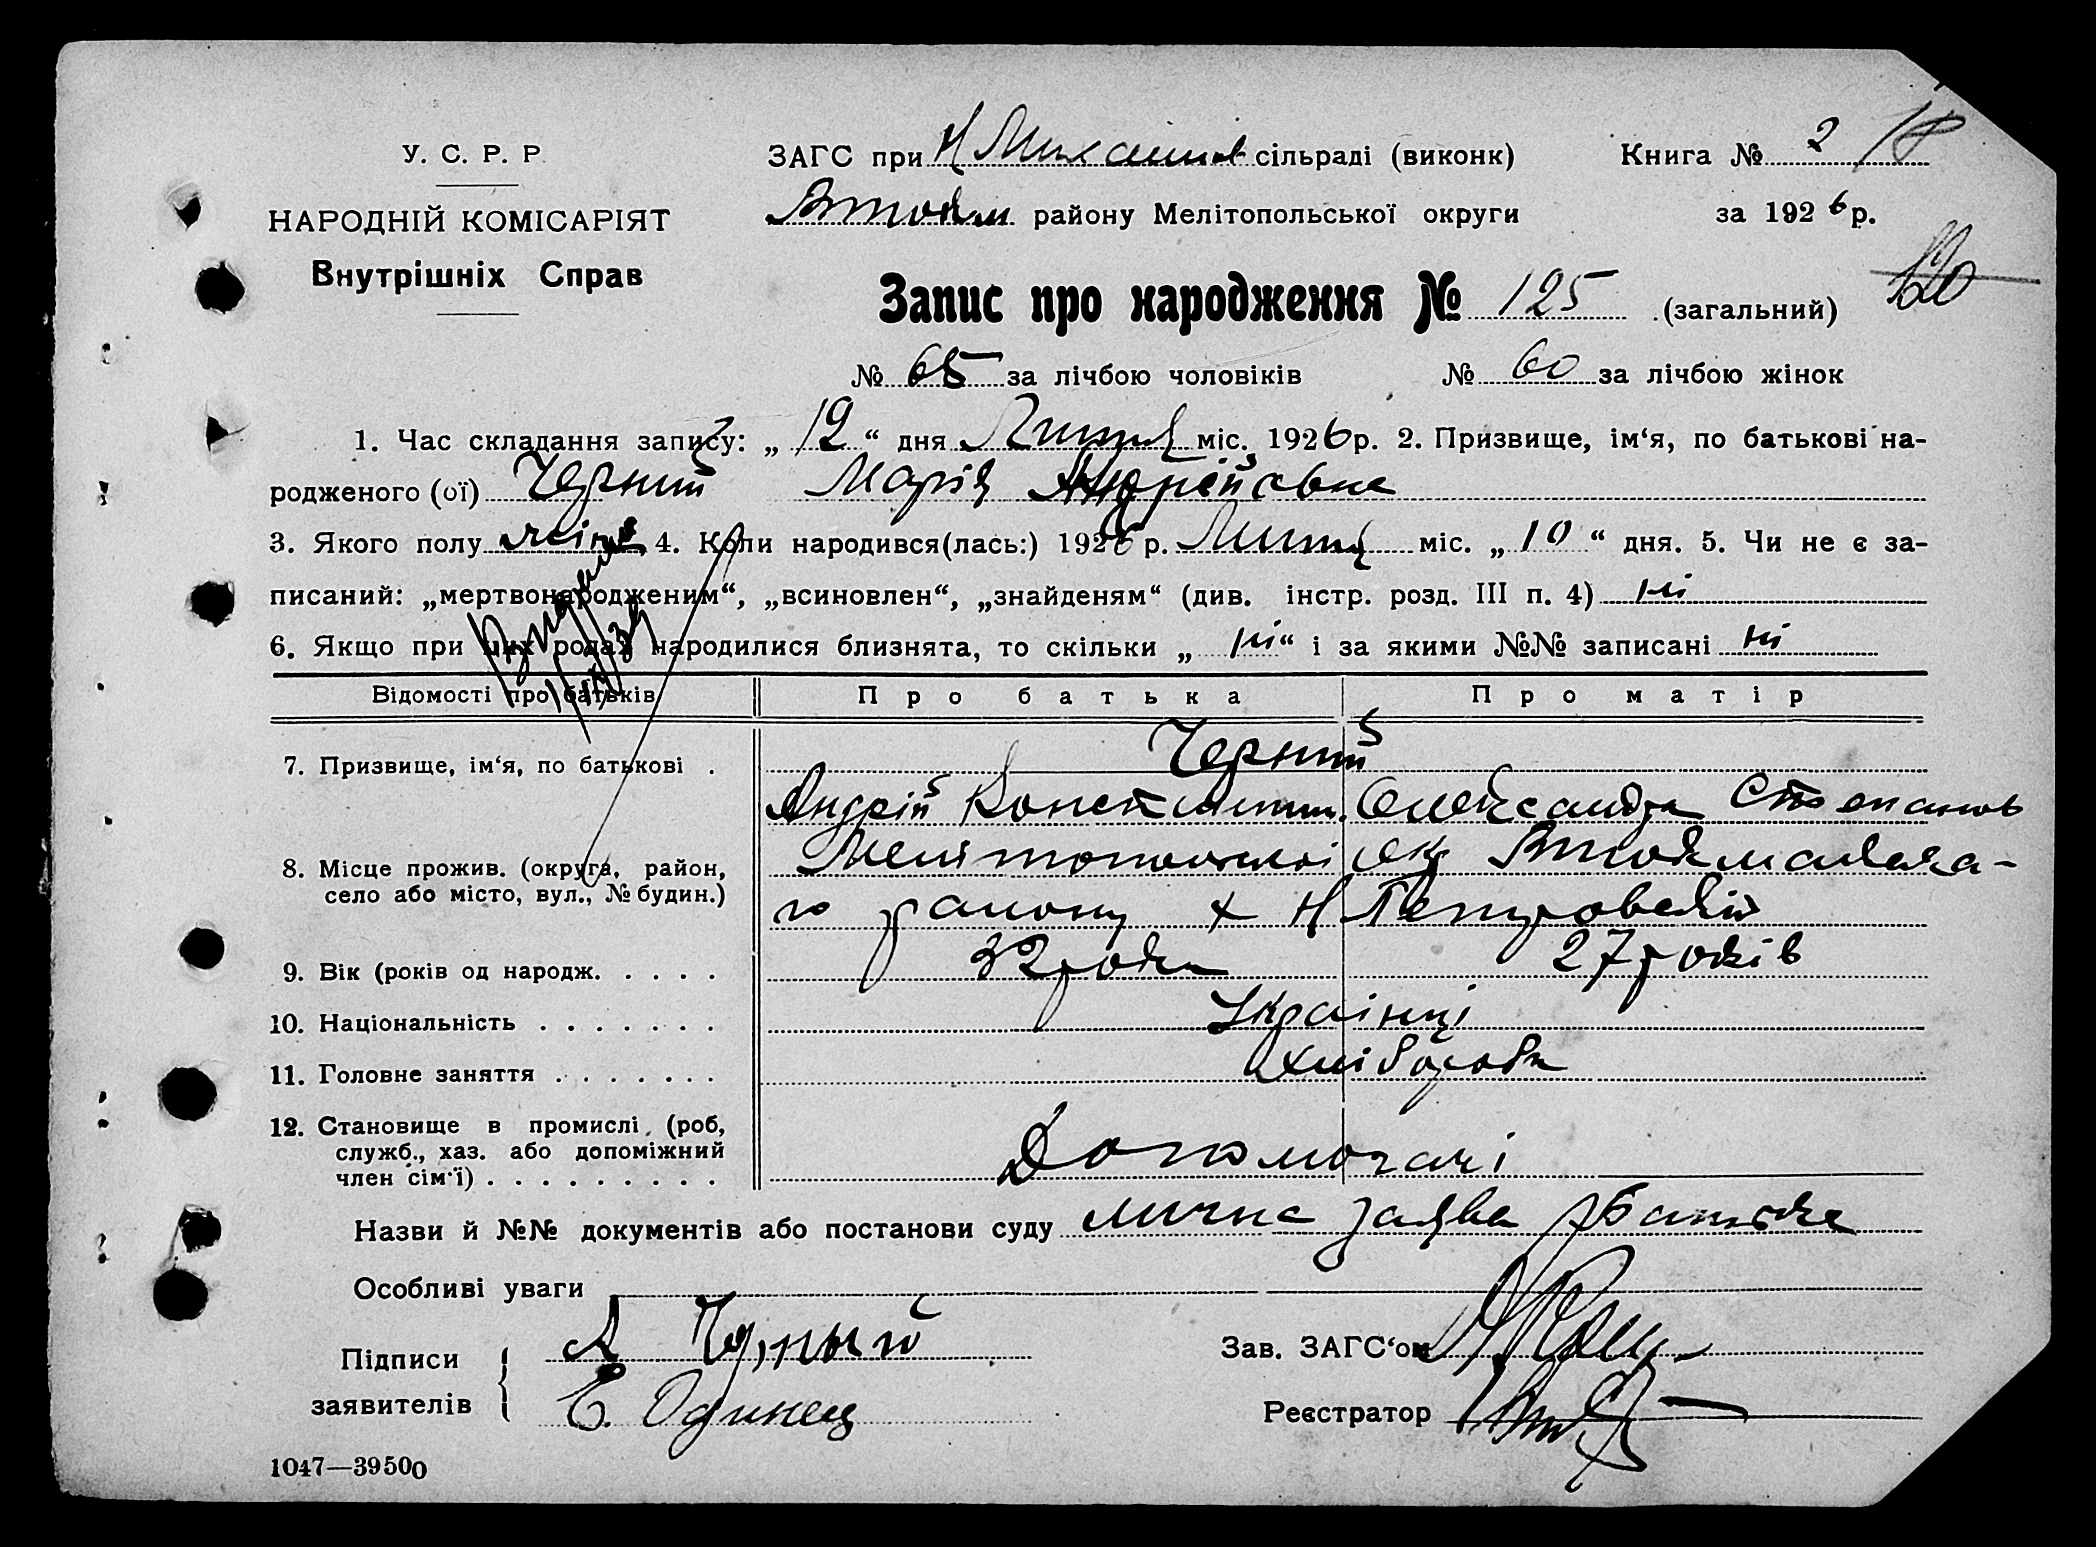 У. С. Р. Р.
НАРОДНІЙ КОМІСАРІЯТ
Внутрішніх Справ
ЗАГС при Н Михайлів сільраді (виконк)
Втокм району Мелітопольської округи
Книга № 2 18
за 1926 р.
Запис про народження № 125 (загальний)
120
№ 65 за лічбою чоловіків № 60 за лічбою жінок
1. Час складання запису: „ 12 “ дня Липця міс. 1926 р. 2. Призвище, ім‘я, по батькові на-
родженого (ої) Черний Марія Андрійовна
3. Якого полу жіноч 4. Коли народився(лась:) 1926 р. Липця міс. „ 10 “ дня. 5. Чи не є за-
писаний: „мертвонародженим“, „всиновлен“, „знайденям“ (див. інстр. розд. III п. 4) ні
6. Якщо при цих родах народилися близнята, то скільки „ ні “ і за якими №№ записані ні
Відомості про батьків Про батька Про матір
7. Призвище, ім‘я, по батькові . Черний
Андрій Констянтин. Олександра Степанов
8. Місце прожив. (округа, район,
село або місто, вул., № будин.)
Мелітопольскої окр Втокмацька-
го району х Н Петровський
9. Вік (років од народж. . . . . 32 роки 27 років
10. Національність . . . . . . . Українці
11. Головне заняття . . . . . . . хлібороби
12. Становище в промислі (роб,
служб., хаз. або допоміжний
член сім‘ї) . . . . . . . . . Допомогачі
Назви й №№ документів або постанови суду лична заява батька
Особливі уваги
Підписи
заявителів
А Чорный
Е. Одинец
Зав. ЗАГС‘ом
Реєстратор
1047—39500